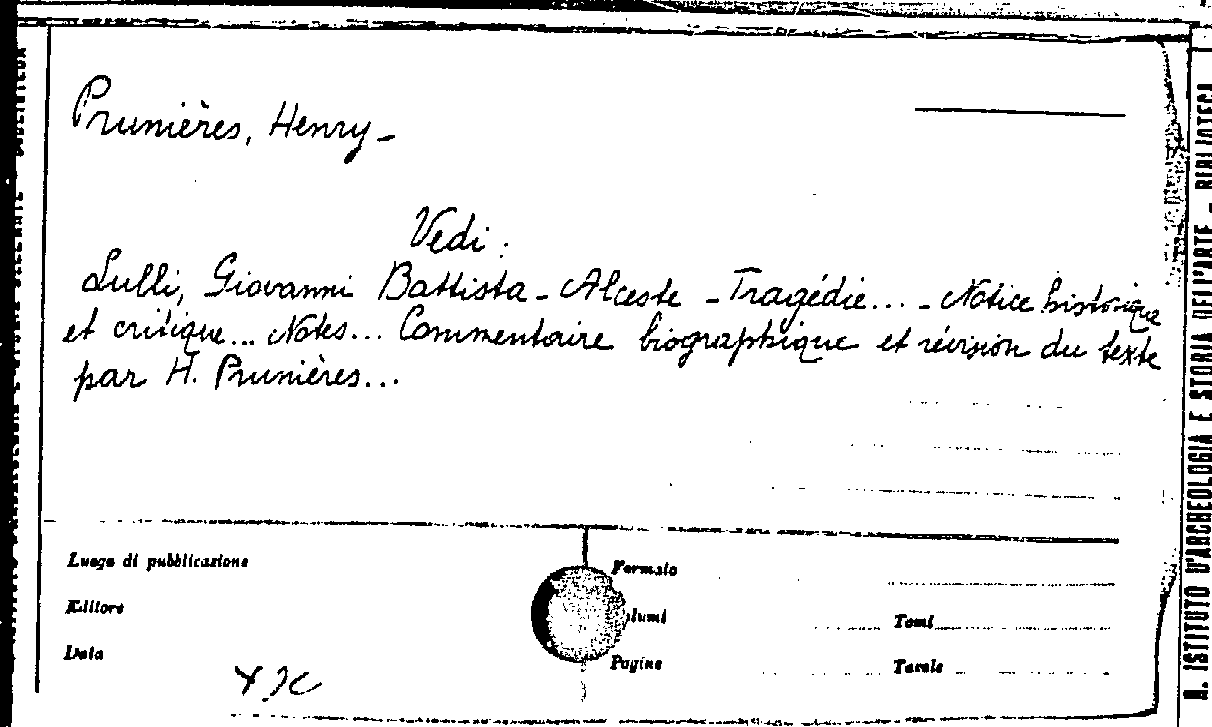 Prunières, Henry -
Vedi:
Lulli, Giovanni Battista - Alceste - Tragédie... - Notice historique
et critique... Notes... Commentaire biographique et révision du texte
par H. Prunières...
Luogo di pubblicazione
Formato
Editore
Tomi
Data
Pagine
Tavole
R. ISTITUTO D'ARCHEOLOGIA E STORIA DELL'ARTE - BIBLIOTECA